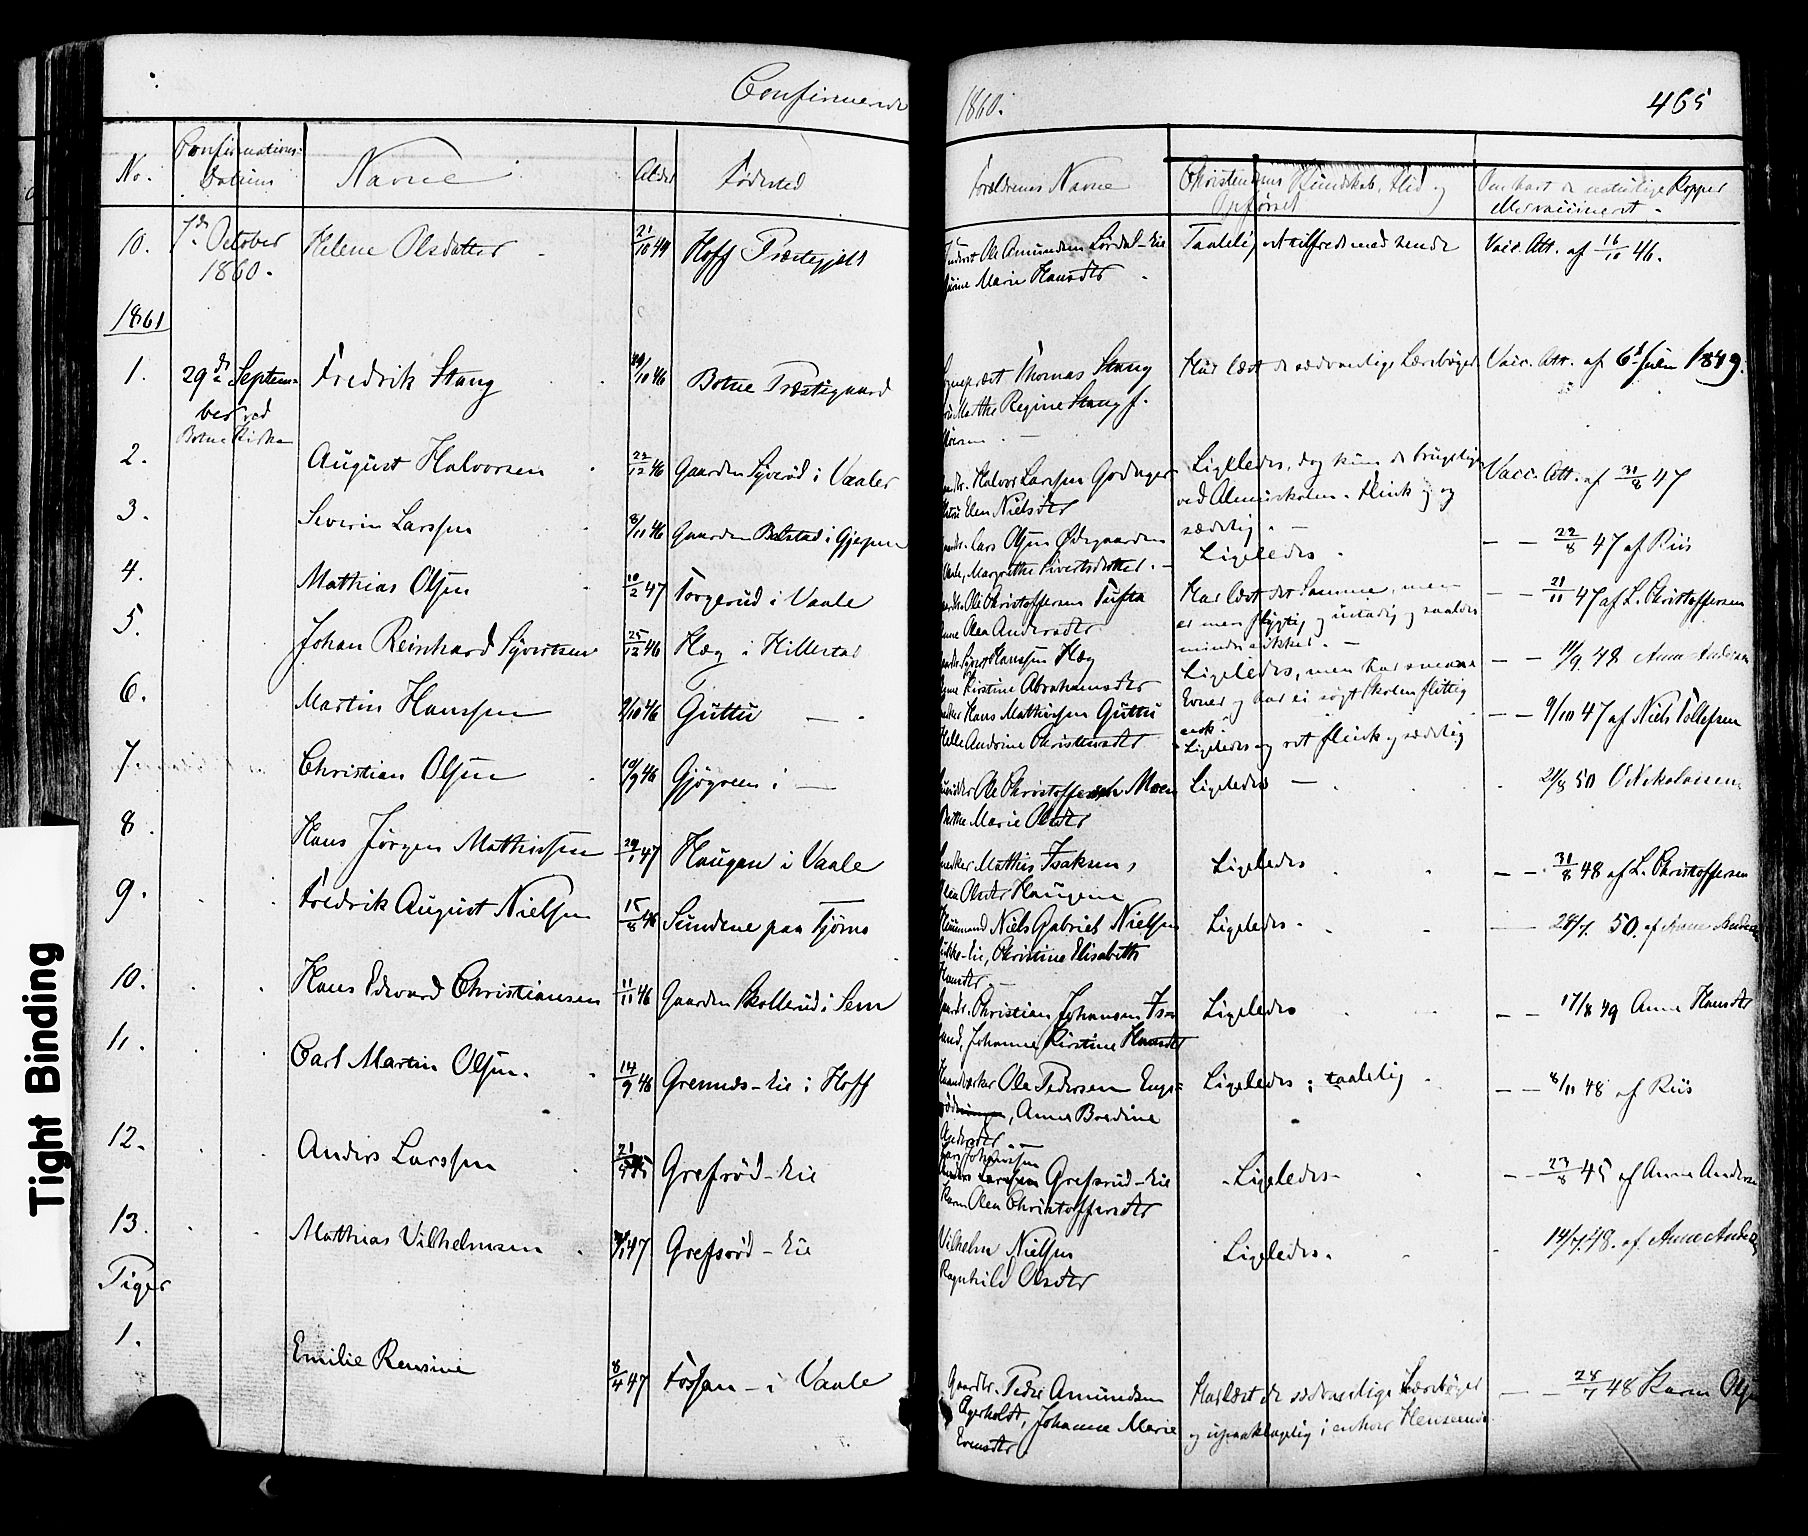 Confirmerede 1860. 465
No. Confirmations- Datum Navne Alder Fødested Forældrenes Navne Christendoms Kundskab, Flid og Opførsel Om havt de naturlige Kopper eller vaccineret.
10. 7de October 1860. Helene Olsdatter 21/10 44 Hoff Præstegjeld Ole Amundsen Lørdal-Eie Marie Hansdtr Taalelig tilfredsstillende Vacc. Att. af 16/10 46.
1861
1. 29de September ved Botne Kirke Fredrik Stang /10 46 Botne Præstegaard Sognepræst Thomas Stang Marthe Regine Stang f. Har læst de sædvanlige Lærebøger Vacc. Att. af 6te Julii 1849.
2. August Halvorsen 22/12 46 Gaarden Syverød i Vaaler Halvor Larssen Godager Elen Nielsdtr Ligeledes, dog kun de brugelige ved Almueskolen. Flink og sædelig. Vacc. Att. af 31/8 47
3. Severin Larssen 8/11 46 Gaarden i Lars Olsen Ødegaarden Margrethe Sivertsdatter. Ligeledes. — — 22/8 47 af Riis
4. Mathias Olsen 10/2 47 Torgerud i Vaale Ole Christoffersen Tufta Olea Andersdtr Har læst det Samme, men er men flygtig og saaledes mindre sikker. — — 21/11 47 af L. Christoffersen
5. Johan Reinhard Syvertsen 25/12 46 Hæg i Hillestad Hanssen Hæg Kirstine Abrahamsdtr Ligeledes, men har svage Evner og har ei søgt Skolen flittig — — 11/9 48 Anne Andersen
6. Martin Hanssen 9/10 46 Guttu — Hans Mathissen Guttu Helle Andrine Christensdtr Ligeledes og ret flink og sædelig — — 9/10 47 af Niels Tollefsen
7. Christian Olsen 10/9 46 Gjøgreen i — Ole Christoffersen Moen Berthe Marie Olsdtr Ligeledes — 21/8 50 O Nikolaisen
8. Hans Jørgen Mathissen 29/1 47 Haugen i Vaale Mathis Isaksen, Olea Olsdtr Haugene Ligeledes — — 31/8 48 af L. Christoffersen
9. Fredrik August Nielsen 15/8 46 Sundene paa Tjømø Niels Gabriel Nielsen Christine Elisabeth Hansdtr. Ligeledes. 28/7. 50. af Anne
10. Hans Edvard Christiansen 11/11 46 Gaarden Skollerud i Sem Christian Johansen Johanne Kirstine Hansdtr Ligeledes — — 17/8 49 Anne Hansdtr
11. Carl Martin Olsen. 14/9 46 Grennes-Eie i Hoff Ole Pedersen Anne Bredine Andersdtr Ligeledes; taalelig — — 8/11 48 af Riis
12. Anders Larssen 21/ 45 Grefsrød-Eie Lars Johannssen Grefsrud-Eie Karen Olea Christoffersdtr -Ligeledes- — — 23/8 45 af Anne Andersen
13. Mathias Vilhelmsen /1 47 Grefsrød-Eie Vilhelm Nielsen Ragnhild Olsdtr Ligeledes. 14/7. 48. af Anne
Piger
1. Emilie Rensine 8/4 47 Fossan - i Vaale Gaardbr. Peder Amundsen Agerholdt, Johanne Marie Evensdtr. Har læst de sædvanlige Lærebøger og upaaklagelig i enhver Henseende. — — 28/7 48 Karen
Tight Binding